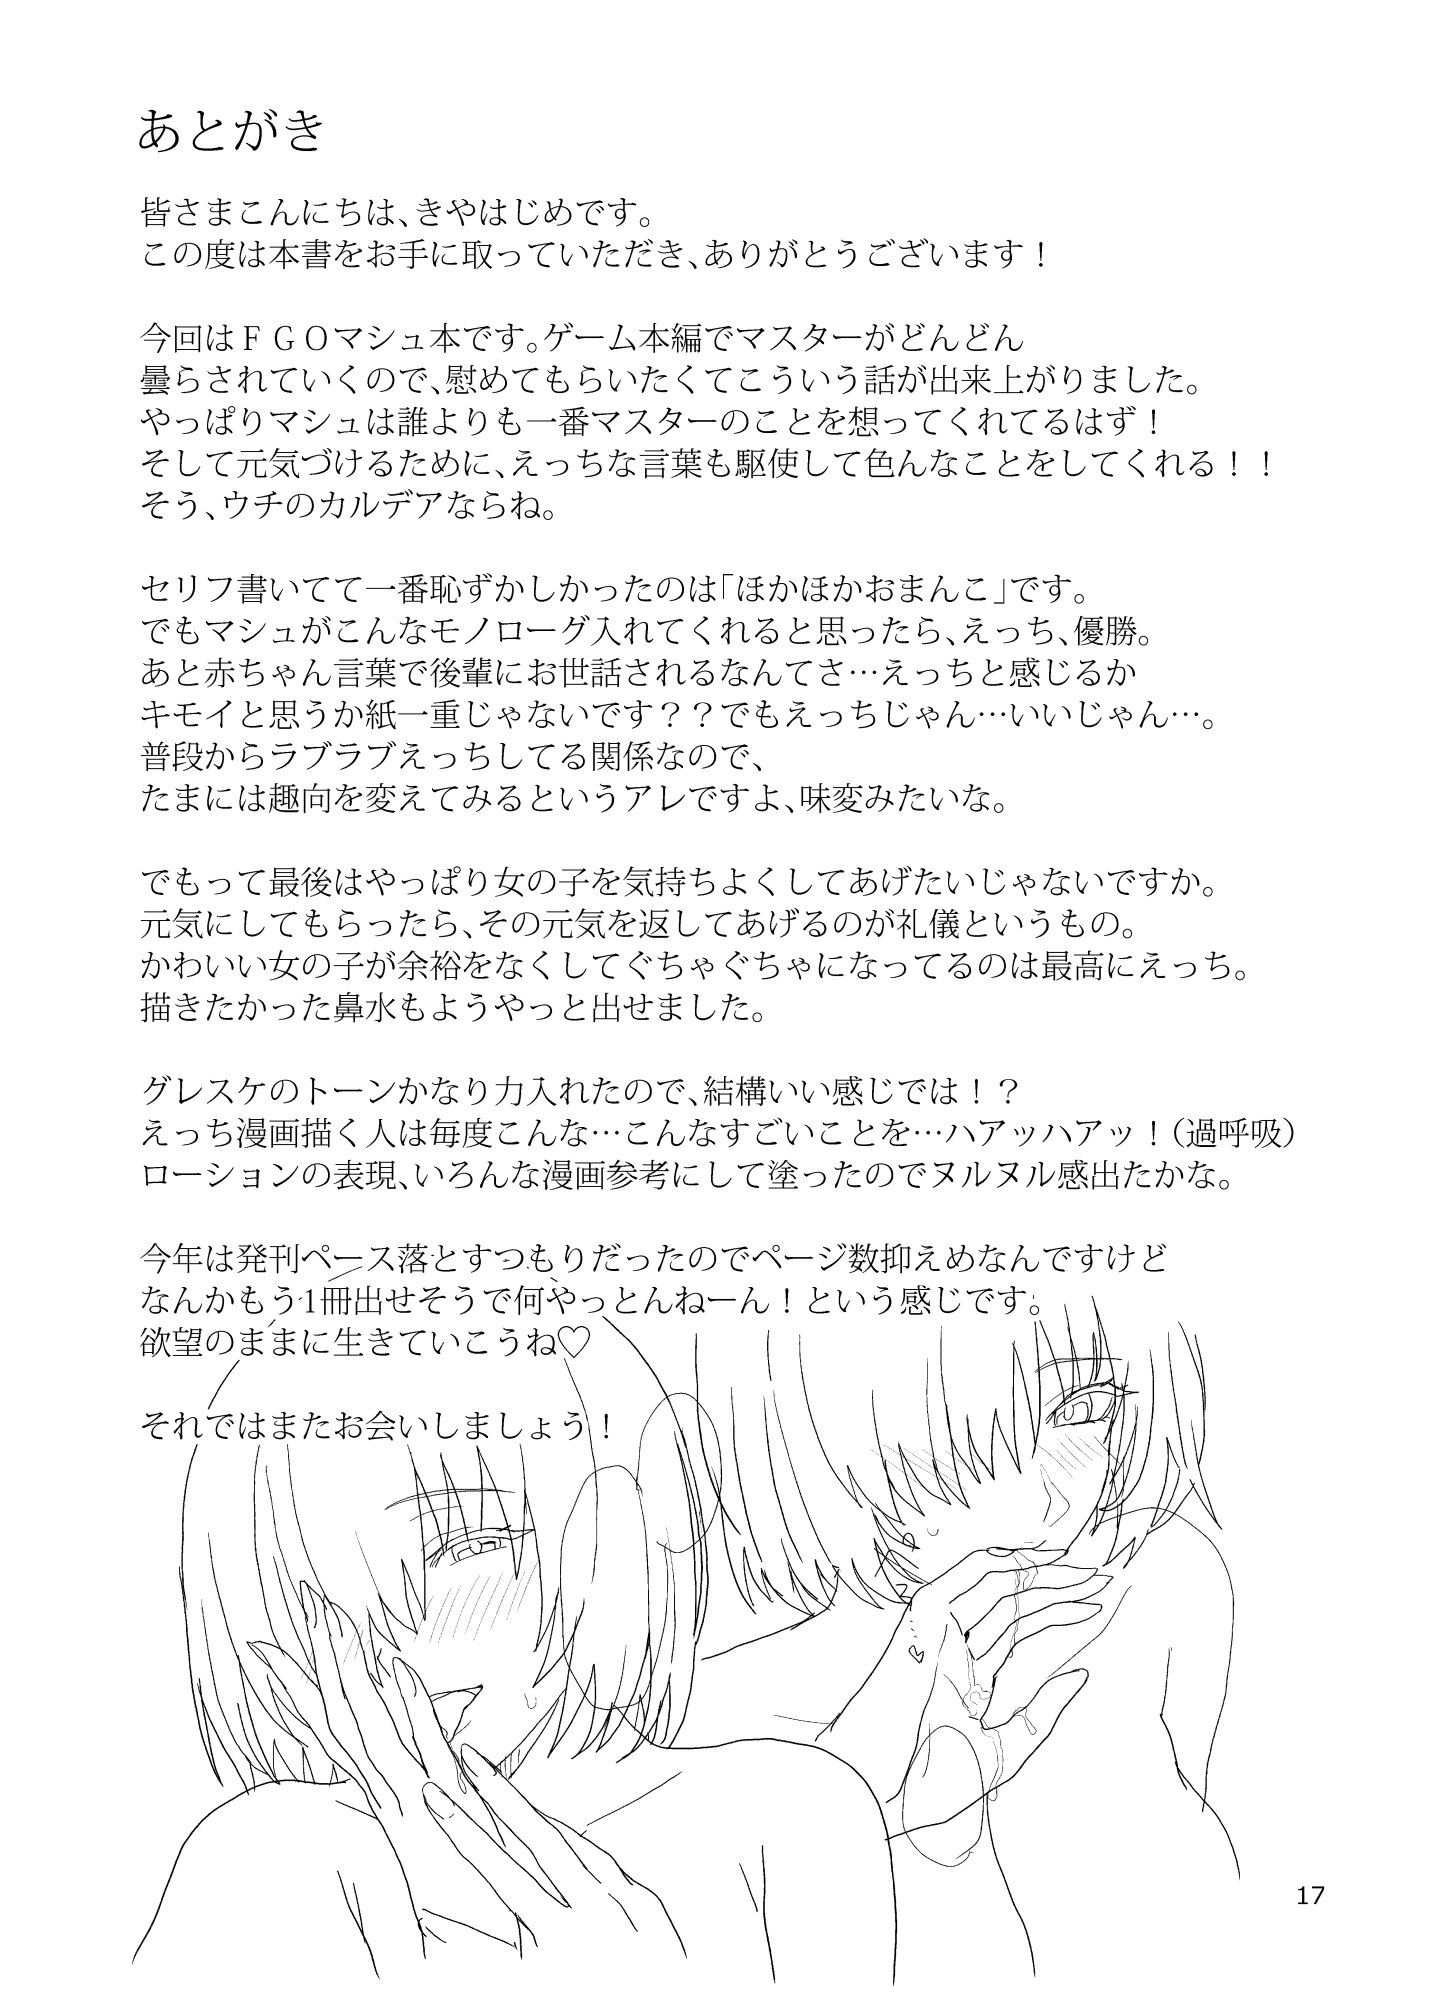 あとがき
皆さまこんにちは、きやはじめです。
この度は本書をお手に取っていただき、ありがとうございます！
今回はＦＧＯマシュ本です。ゲーム本編でマスターがどんどん
曇らされていくので、慰めてもらいたくてこういう話が出来上がりました。
やっぱりマシュは誰よりも一番マスターのことを想ってくれてるはず！
そして元気づけるために、えっちな言葉も駆使して色んなことをしてくれる！！
そう、ウチのカルデアならね。
セリフ書いてて一番恥ずかしかったのは「ほかほかおまんこ」です。
でもマシュがこんなモノローグ入れてくれると思ったら、えっち、優勝。
あと赤ちゃん言葉で後輩にお世話されるなんてさ…えっちと感じるか
キモイと思うか紙一重じゃないです？？でもえっちじゃん…いいじゃん…。
普段からラブラブえっちしてる関係なので、
たまには趣向を変えてみるというアレですよ、味変みたいな。
でもって最後はやっぱり女の子を気持ちよくしてあげたいじゃないですか。
元気にしてもらったら、その元気を返してあげるのが礼儀というもの。
かわいい女の子が余裕をなくしてぐちゃぐちゃになってるのは最高にえっち。
描きたかった鼻水もようやっと出せました。
グレスケのトーンかなり力入れたので、結構いい感じでは！？
えっち漫画描く人は毎度こんな…こんなすごいことを…ハアッハアッ！（過呼吸）
ローションの表現、いろんな漫画参考にして塗ったのでヌルヌル感出たかな。
今年は発刊ペース落とすつもりだったのでページ数抑えめなんですけど
なんかもう1冊出せそうで何やっとんねーん！という感じです。
欲望のままに生きていこうね♡
それではまたお会いしましょう！
17